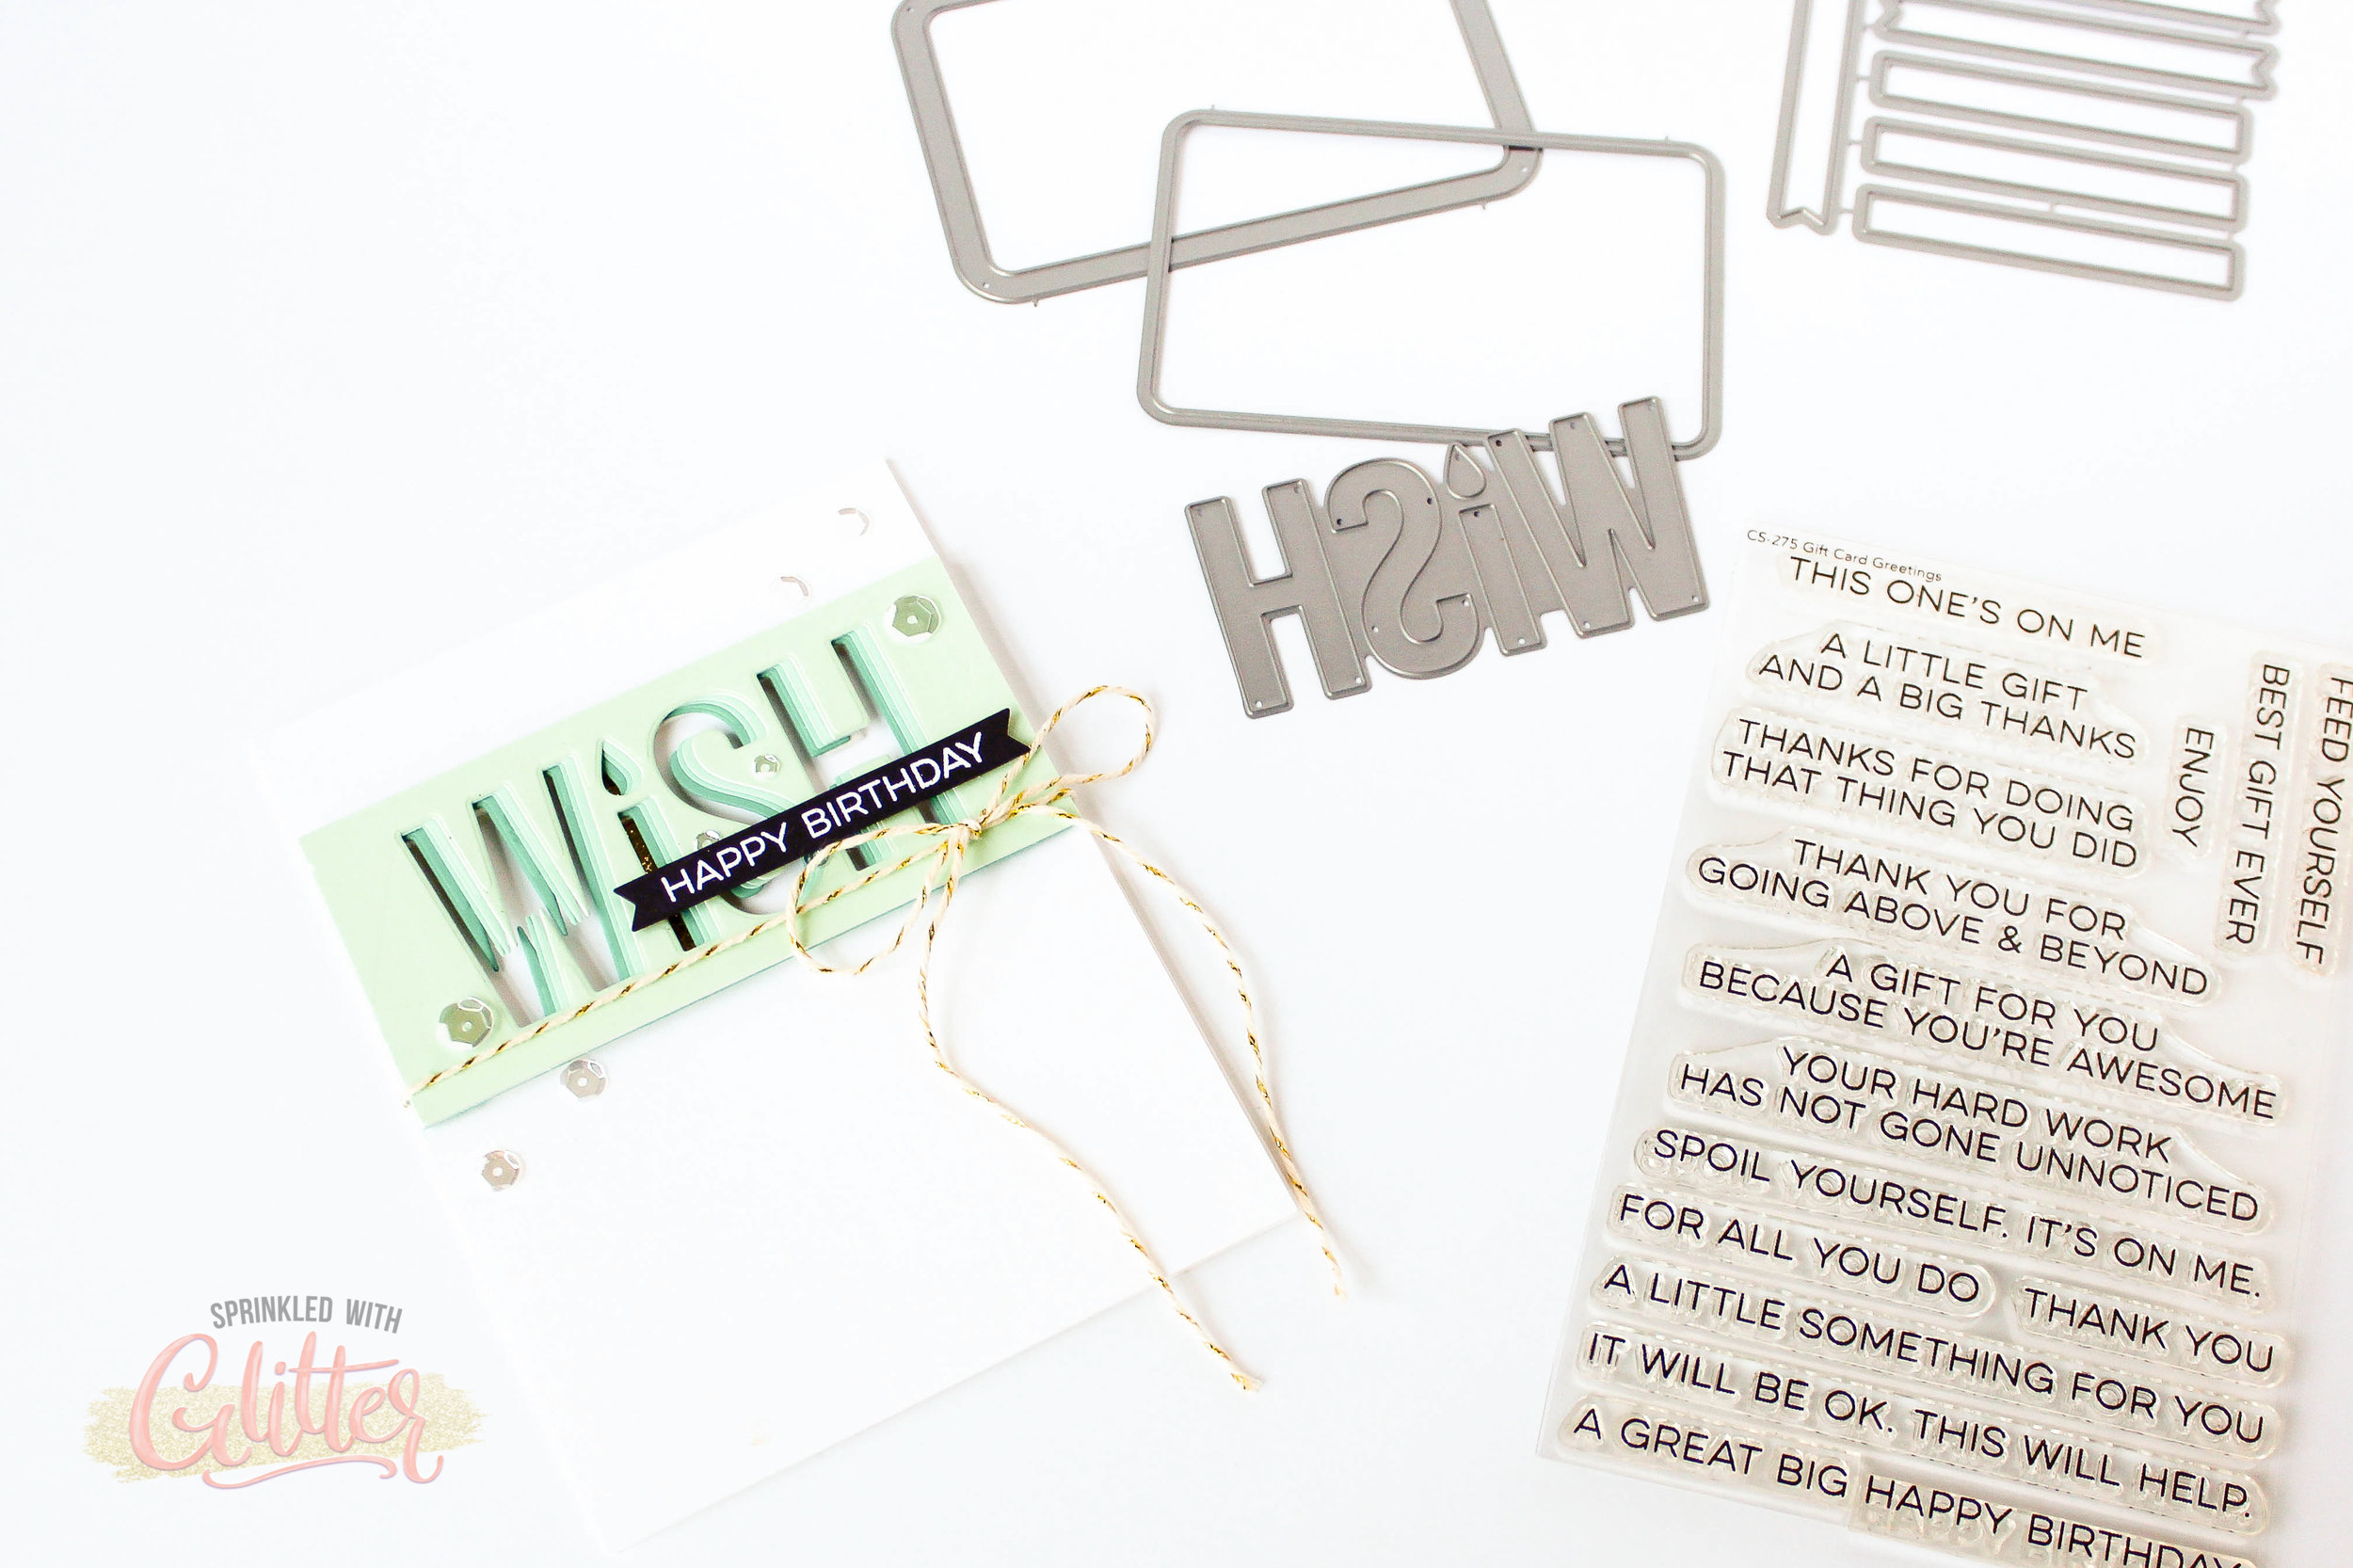 WiSH
HAPPY BIRTHDAY
WiSH
CS-275 Gift Card Greetings
THIS ONE'S ON ME
A LITTLE GIFT
AND A BIG THANKS
THANKS FOR DOING
THAT THING YOU DID
THANK YOU FOR
GOING ABOVE & BEYOND
A GIFT FOR YOU
BECAUSE YOU'RE AWESOME
YOUR HARD WORK
HAS NOT GONE UNNOTICED
SPOIL YOURSELF. IT'S ON ME.
FOR ALL YOU DO
THANK YOU
A LITTLE SOMETHING FOR YOU
IT WILL BE OK. THIS WILL HELP.
A GREAT BIG HAPPY BIRTHDAY
ENJOY
BEST GIFT EVER
FEED YOURSELF
SPRINKLED WITH
Glitter